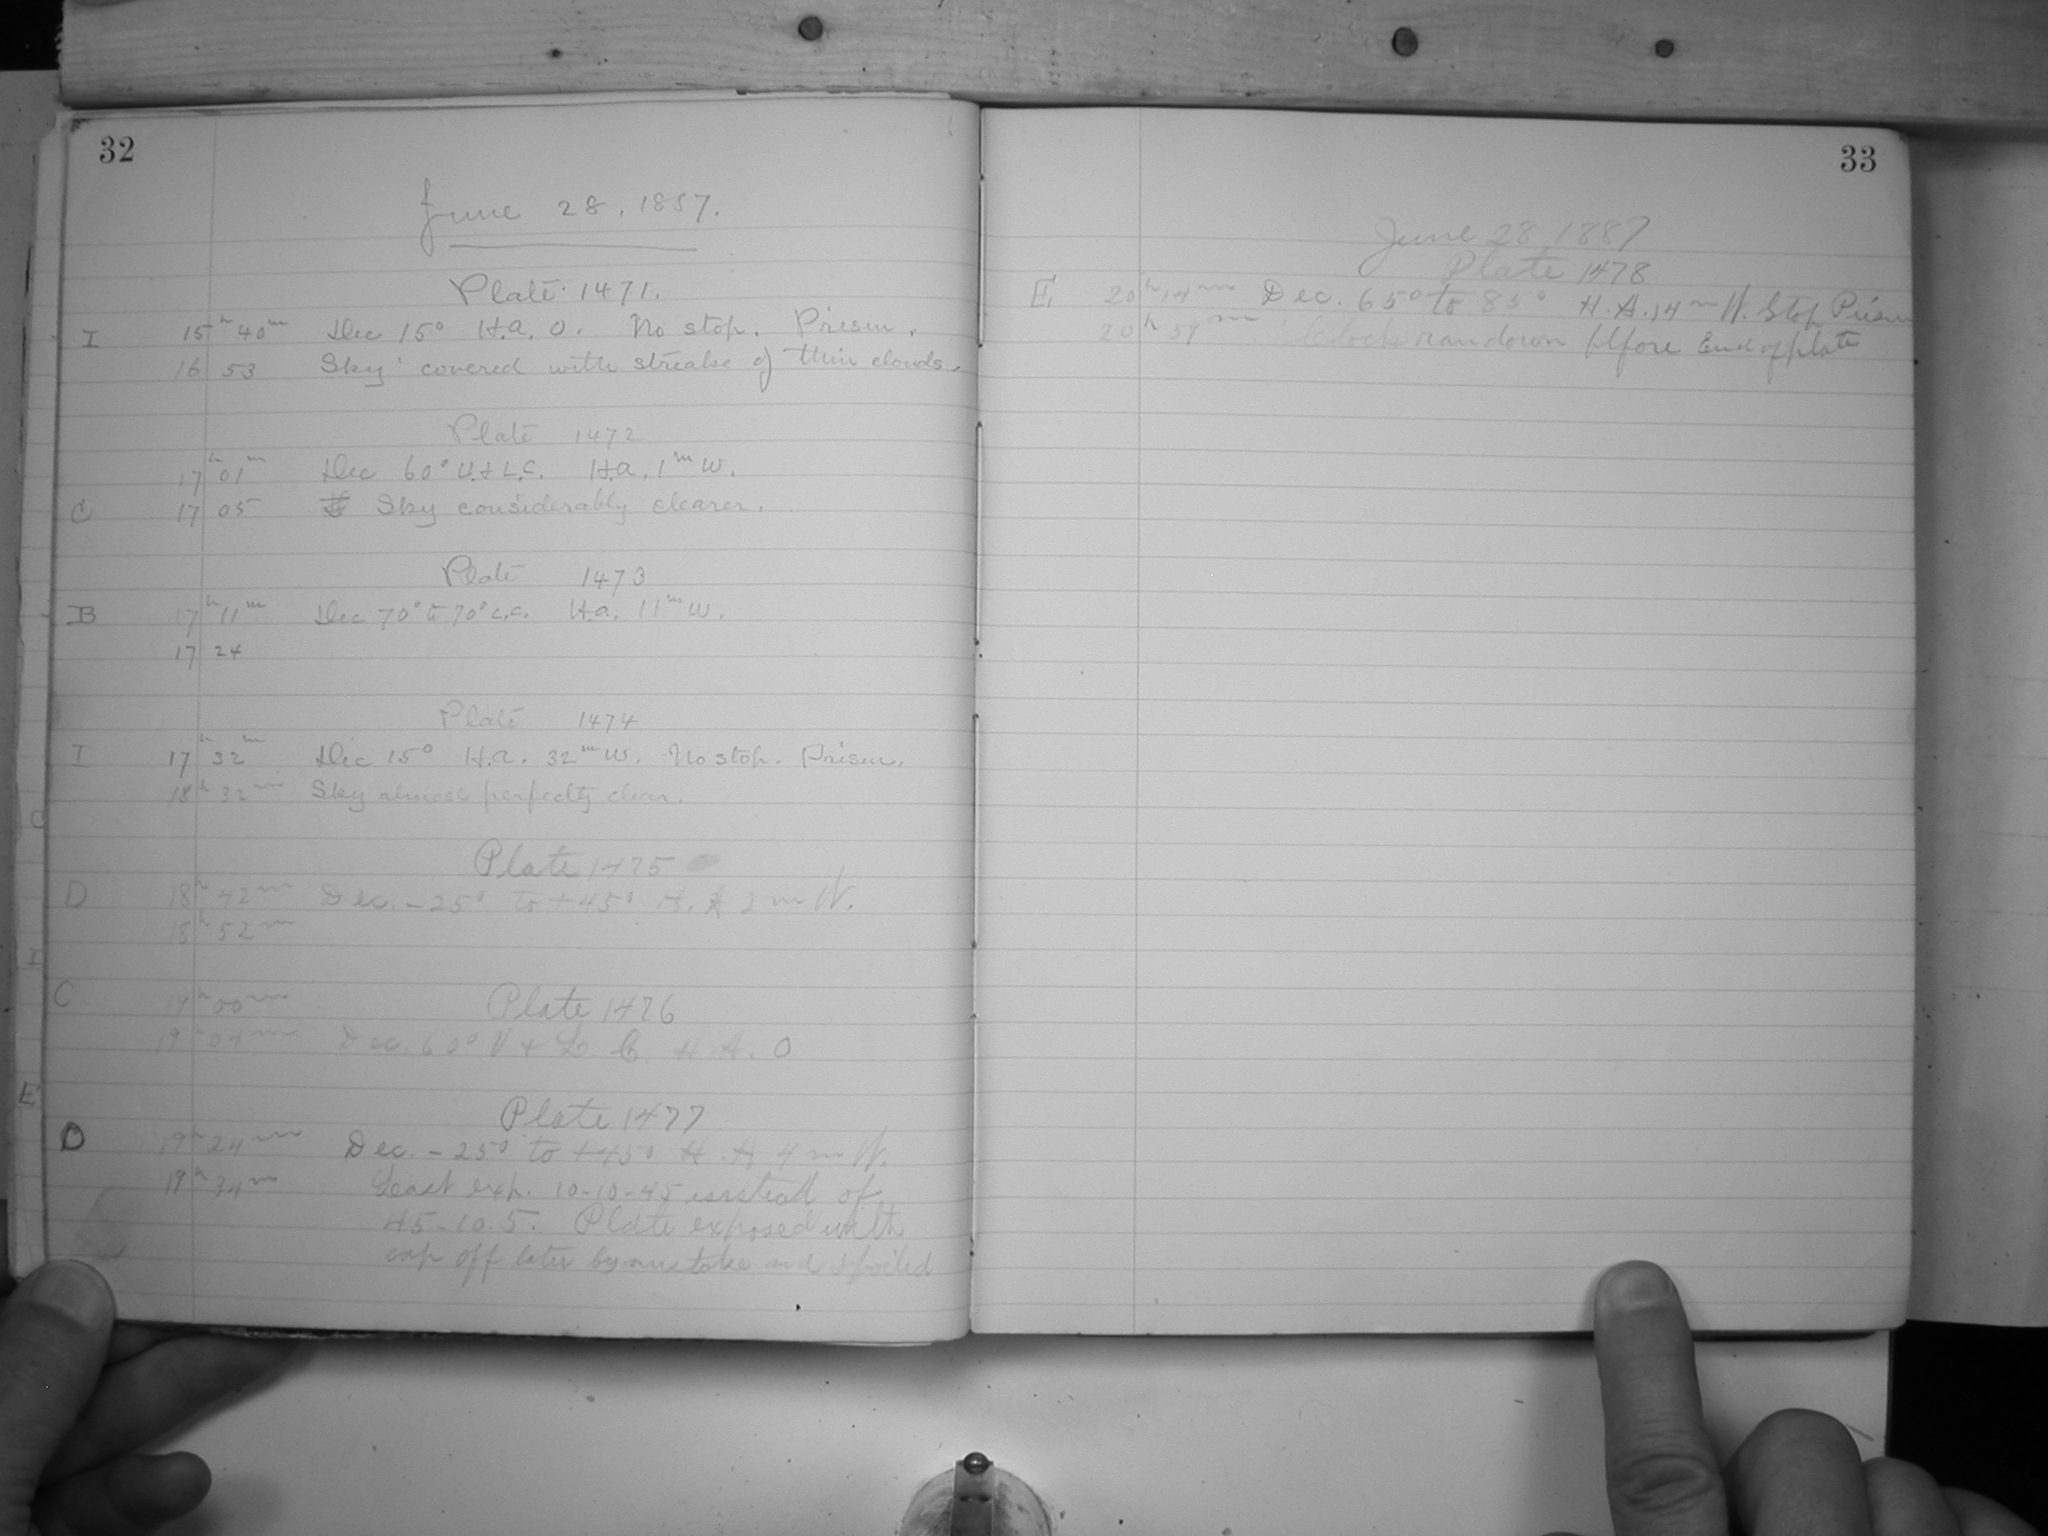 32
June 28, 1887.
Plate 1471.
I 15h 40m Dec 15° H.a. 0. No stop. Prism.
16 53 Sky covered with streaks of thin clouds.
Plate 1472
17h 01m Dec 60° U.+L.C. H.a. 1m W.
C 17 05 Sky considerably clearer.
Plate 1473
B 17h 11m Dec 70° to 70° L.C. H.a. 11m W.
17 24
Plate 1474
I 17h 32m Dec 15° H.a. 32m W. No stop. Prism.
18h 32m Sky almost perfectly clear.
Plate 1475
D 18h 42m Dec. -25° to +45° H. A 2m W.
18h 52m
C 19h 00m Plate 1476
19h 04m Dec. 60° U + L. C. H.A. 0
Plate 1477
D 19h 24m Dec. -25° to +45° H.A 4m W.
19h 34m Last exp. 10-10-45 instead of
45-10.5. Plate exposed with
cap off later by mistake and spoiled
33
June 28, 1887
Plate 1478
E 20h 14m Dec. 65° to 85° H.A. 14m W. Stop Prism
20h 59m Clock ran down before End of plate
C
I
E